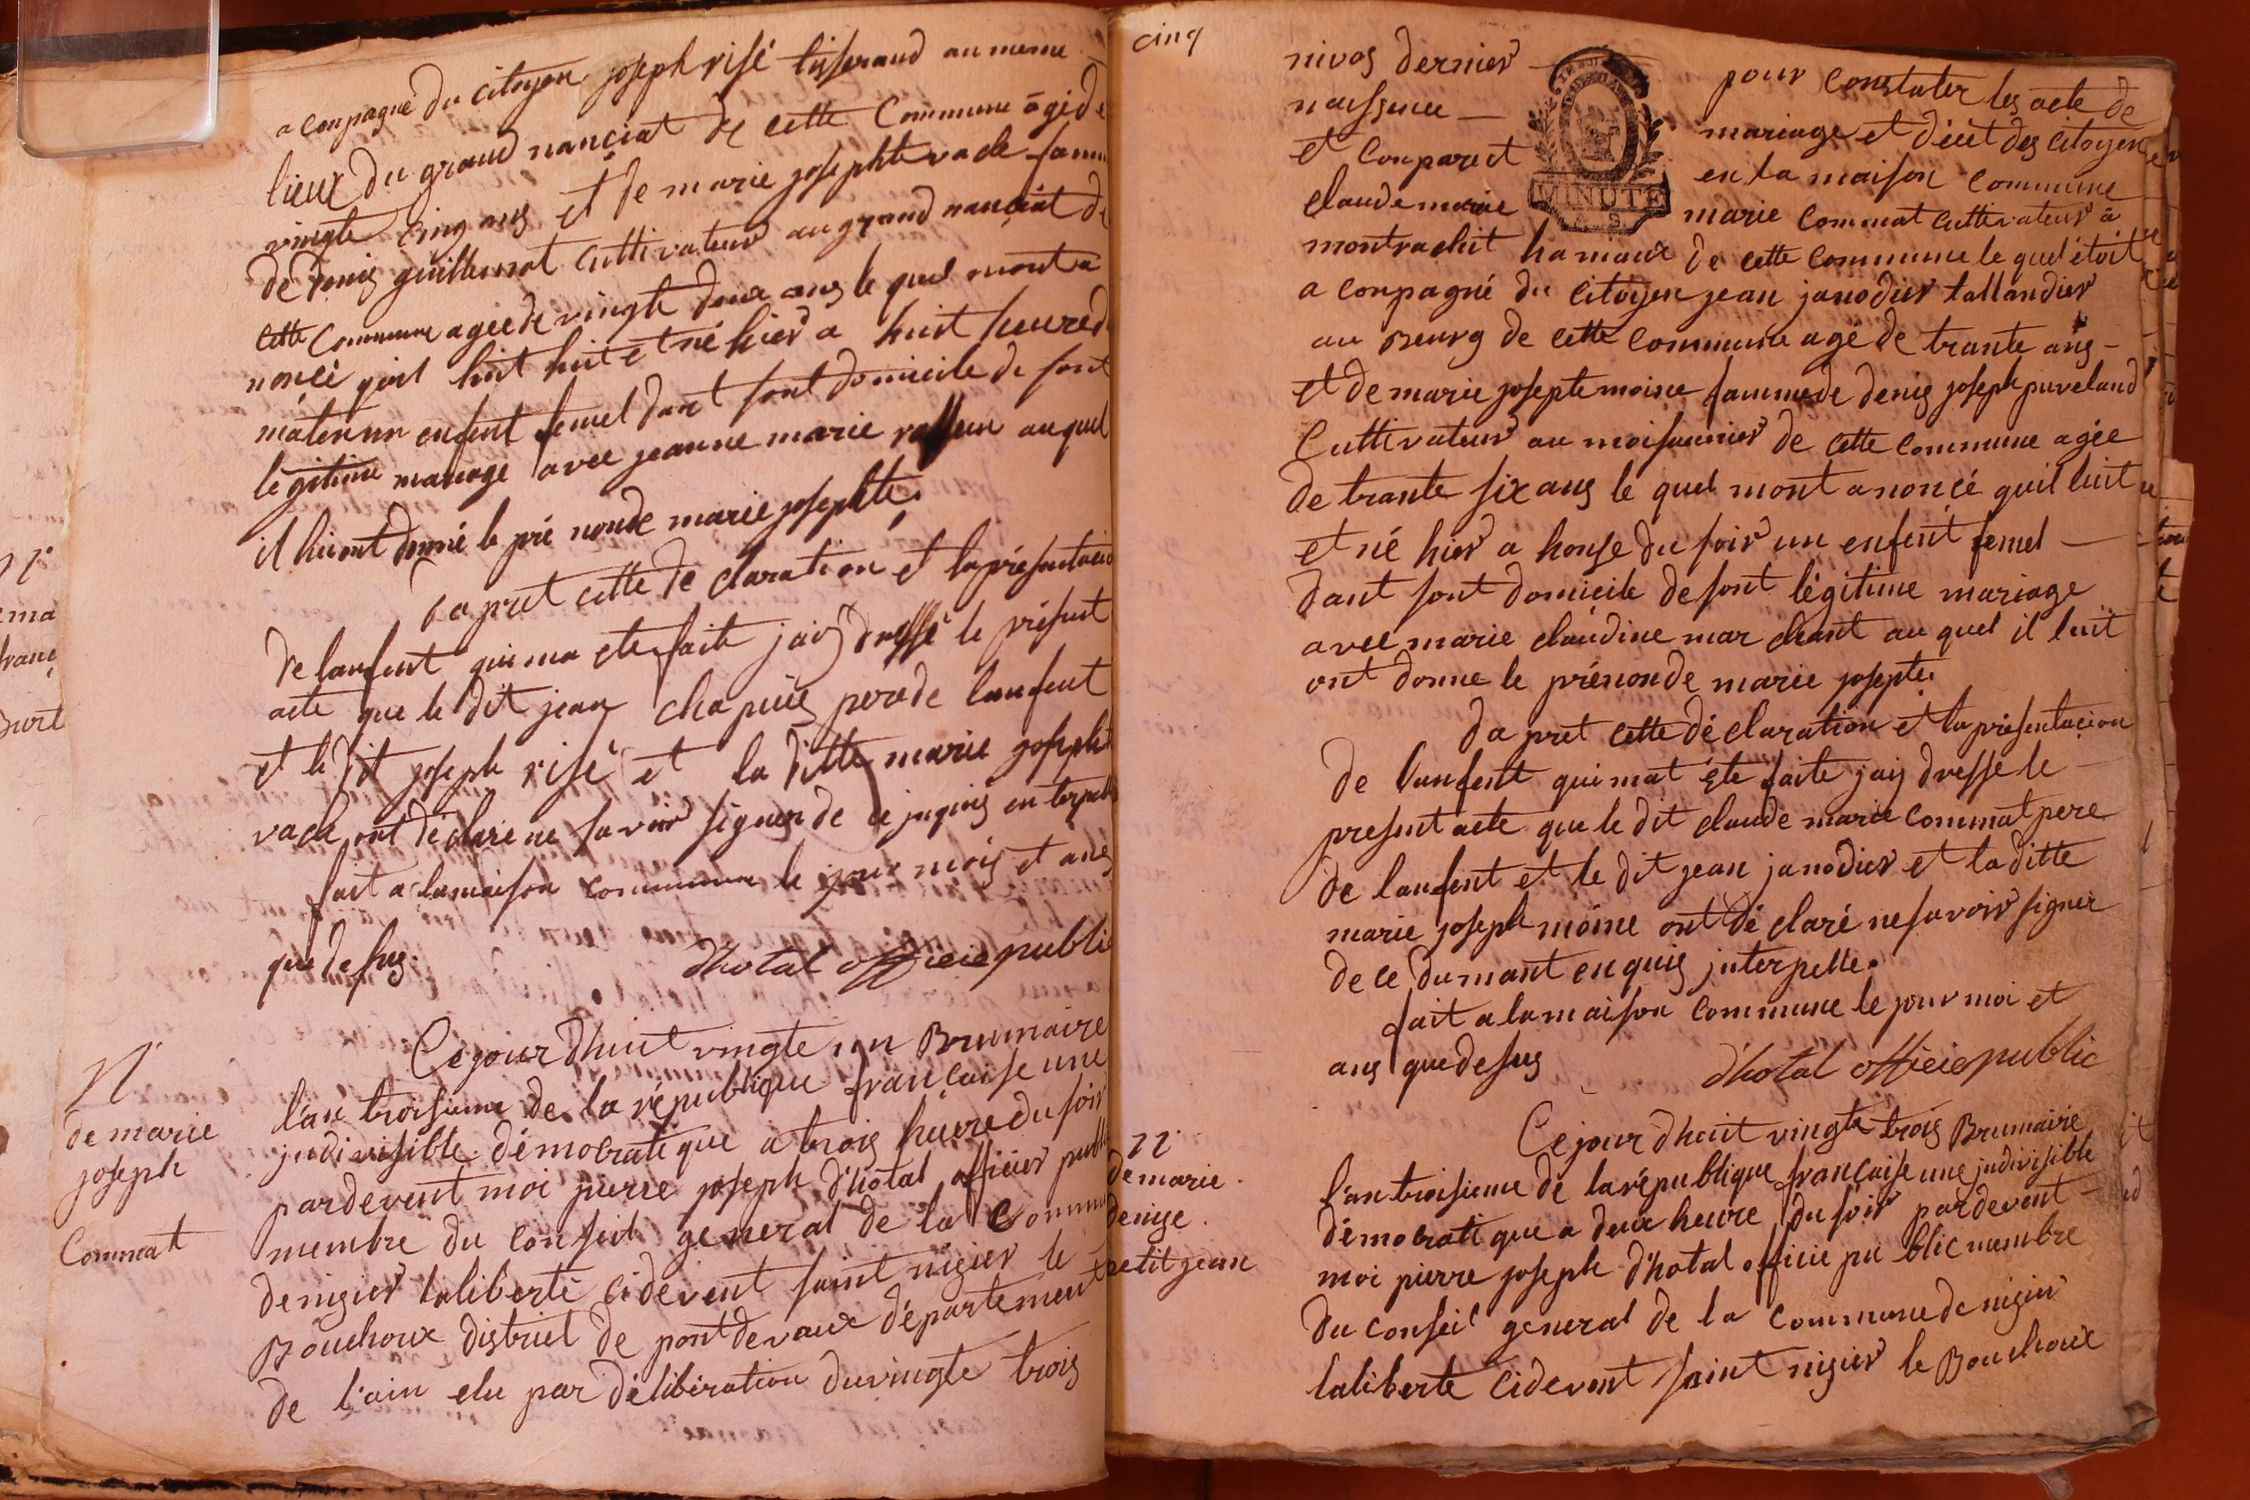 a conpagné du citoyen joseph risé tisserand au meme
lieux du grand nanciat de cette Commune âgé de
vingte cinq ans et de marie josephte vacle famme
de denis guillermot cultivateur au grand nanciat de
cette Commune agée de vingte deux ans le quel mont a
noncé quil luit huit et né hier a huit heure du
maten un enfent femel dant sont domicile de sont
légitime mariage avec jeanne marie au quel
il lui ont donné le pré nonde marie josephte.
da pret cette de claration et la présentacion
de lanfent qui ma ete faite jaij dressé le présent
acte que le dit jean chapuis perede lanfent
et le dit joseph risé et la ditte marie josepht
vacle ont déclaré ne savoir signer de ce
fait a lamaison commune le jour mois et ans
que desus. d'hotal officie public
N
de marie
joseph
Commat
Ce jour dhuit vingte un Brumaire
l'an troisieme de la république francaise une
jndivisible démocratique a trois heure du soir
pardevent moi pierre joseph d'hotal officier public
membre du conseil general de la Commune
denizier laliberté cidevent saint nizier le
Bouchoux district de pontdevaux département
de l'ain elu par délibération duvingte trois
cinq
nivos dernier pour constater les acte de
naissence mariage et décét des citoyen
et conparet en la maison commune
claude marie marie commat cultivateur à
montrachit hamaux de cette commune le quel étoit
a conpagné du citoyen jean janodier tallandier
au Bourg de cette commune agé de trante ans
et de marie josepte moine famme de denis joseph puveland
Cultivateur au moisonnier de cette commune agée
de trante six ans le quel mont anoncé quil luit
et né hier a honse du soir un enfent femel
dant sont domicile de sont légitime mariage
avec marie claudine mar chant au quel il luit
ont donne le prénonde marie josepte.
da pret cette déclaration et la présentacion
de lanfent qui mat éte faite jaij dresse le
present acte que le dit claude marie commat pere
de lanfent et le dit jean janodier et la ditte
marie joseph moine ont dé claré ne savoir signer
de ce dumant enquis jnterpelle.
fait a la maison commune le jour moi et
ans que desus d'hotal officie public
N
de marie
denise
petit jean
Ce jour dhuit vingte trois Brumaire
l'an troisieme de la république francaise une jndivisible
démocratique a deux heure du soir pardevent
moi pierre joseph d'hotal officie pu blic membre
du conseil general de la commune de nizier
laliberté cidevent saint nizier le Bouchoux
MINUTE